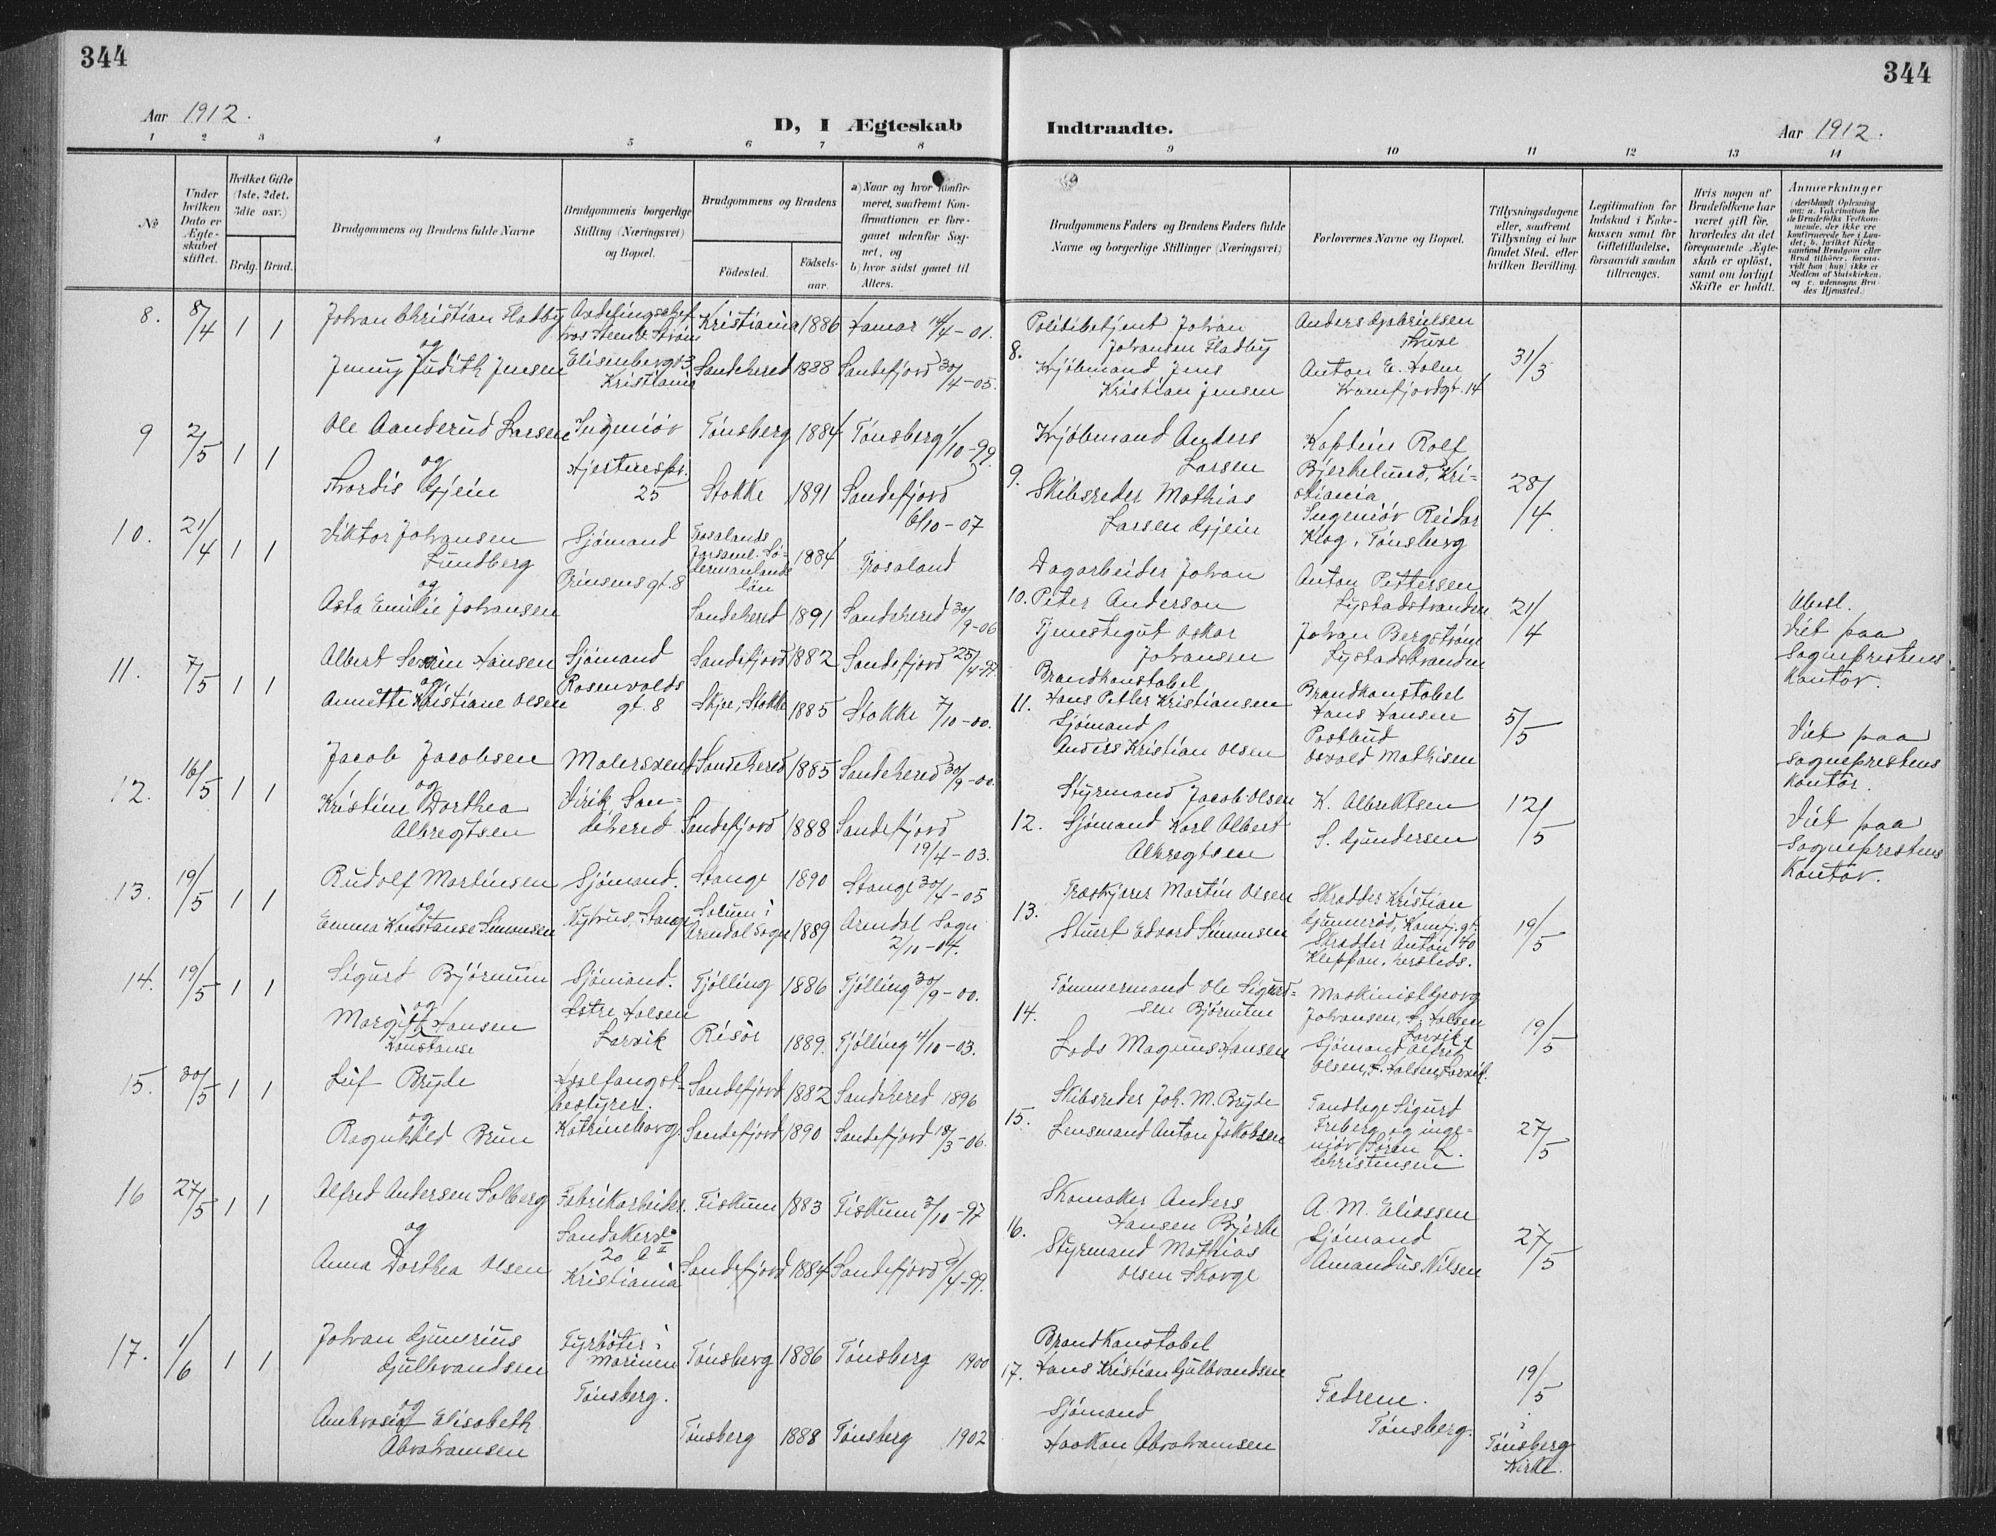 344
344
Aar 1912.
D, I Ægteskab Indtraadte.
Aar 1912.
1 2 3 4 5 6 7 8 9 10 11 12 13 14
№
Under hvilken Dato er Ægteskabet stiftet.
Hvilket Gifte (1ste, 2det, 3die osv.)
Brdg. Brud.
Brudgommens og Brudens fulde Navne
Brudgommens borgerlige Stilling (Næringsvei) og Bopæl.
Brudgommens og Brudens
Fødested.
Fødsels-aar.
a) Naar og hvor konfirmeret, saafremt Konfirmationen er foregaaet udenfor Sognet, og
b) hvor sidst gaaet til Alters.
Brudgommens Faders og Brudens Faders fulde Navne og borgerlige Stillinger (Næringsvei)
Forlovernes Navne og Bopæl.
Tillysningsdagene eller, saafremt Tillysning ei har fundet Sted, efter hvilken Bevilling.
Legitimation for Indskud i Enkekassen samt for Giftetilladelse, forsaavidt saadan tiltrænges.
Hvis nogen af Brudefolkene har været gift før, hvorledes da det foregaaende Ægteskab er opløst, samt om lovligt Skifte er holdt.
Anmærkninger
8. 8/4 1 1 Johan Christian Fladby
Kristiania 1886 Hamar 14/4-01.
og
Jenny Judith Jensen
Elisenbergv. 3
Kristiania
Sandehered 1888 Sandefjord 30/4-05.
8. Politibetjent Johan
Johansen Fladby
Kjøbmand Jens
Kristian Jensen
Anders Gabrielsen
Anton E. Holm
31/3
9 2/5 1 1 Ole Aanderud Larsen
Ingeniør
Tønsberg 1884 Tønsberg 1/10-99.
og
Thordis Gjein
25
Stokke 1891 Sandefjord
6/10-07
9. Kjøbmand Anders
Larsen
Skibsreder Mathias
Larsen Gjein
Kaptein Rolf
Bjerkelund, Kristiania
Ingeniør Reidar
Klog, Tønsberg
28/4
10. 21/4 1 1 Viktor Johansen
Lundberg
Sjømand
Prinsensgt. 8
1884 Trosaland
og
Asta Emilie Johansen
Sandehered 1891 Sandehered 30/9-06
10. Dagarbeider Johan
Peter Anderson
Tjenestegut Oskar
Johansen
Anton Pettersen
Lystadstranden
Johan Bergstrøm
Lystadstranden
21/4
Viet paa
Sogneprestens
Kontor.
11. 7/5 1 1 Albert Severin Hansen
Sjømand
Rosenvolds
gt. 8
Sandefjord 1882 Sandefjord 25/4-97
og
Annette Kristiane Olsen
Skjee, Stokke 1885 Stokke 7/10-00.
11. Brandkonstabel
Hans Petter Kristiansen
Sjømand
Anders Kristian Olsen
Brandkonstabel
Hans Hansen
Postbud
Osvald Mathisen
5/5
Viet paa
Sogneprestens
Kontor.
12. 16/5 1 1 Jacob Jacobsen
Malersvend
Virik, Sandehered
Sandehered 1885 Sandehered 30/9-00.
og
Kristine Dorthea
Albregtsen
Sandefjord 1888 Sandefjord
19/4-03.
12. Styrmand Jacob Olsen
Sjømand Karl Albert
Albregtsen
K. Albrektsen
S. Gundersen
12/5
Viet paa
Sogneprestens
Kontor.
13. 19/5 1 1 Rudolf Martinsen
Sjømand.
Nyhus, Stange
Stange 1890 Stange 30/4-05
og
Emma Konstanse Simonsen
Solum i
Arendal Sogn 1889 Arendal Sogn
2/10-04.
13. Træskjærer Martin Olsen
Stuert Edvard Simonsen
Skrædder Kristian
Gunnerød,
Skrædder Anton
19/5
14. 19/5 1 1 Sigurd Bjørnum
Sjømand.
Østre Halsen
Larvik
Tjølling 1886 Tjølling 30/9-00.
og
Margit Hansen
Konstanse
Risør 1889. Tjølling 4/10-03.
14. Tømmermand Ole Sigurdsen Bjørnum
Lods Magnus Hansen
Maskinist Georg
Johansen, Ø. Halsen
Larvik
Sjømand Alfred
Olsen, Ø. Halsen, Larvik.
19/5
15. 30/5 1 1 Leif Bryde
Hvalfangstbestyrer.
Katrineborg
Sandefjord 1882 Sandehered 1896
og
Ragnhild Brun
Sandefjord 1890 Sandefjord 18/3-06.
15. Skibsreder Joh. M. Bryde
Lensmand Anton Jakobsen
Tandlæge Sigurd
Friberg og ingeniør Søren L.
Christensen
27/5
16 27/5 1 1 Alfred Andersen Solberg
Fabrikarbeider
Kristiania
Fiskum 1883 Fiskum 3/10-97
og
Anna Dorthea Olsen
Sandefjord 1884 Sandefjord 9/4-99.
16. Skomaker Anders
Hansen Bjerke
Styrmand Mathias
Olsen Skorge
A. M. Eliassen
Sjømand
Amandus Nilsen
27/5
17. 1/6 1 1 Johan Gunerius
Gulbrandsen
Fyrbøter i
Marinen
Tønsberg.
Tønsberg 1886 Tønsberg 1900
og
Elisabeth
Abrahamsen
Tønsberg 1888 Tønsberg 1902
17. Brandkonstabel
Hans Kristian Gulbrandsen
Sjømand
Haakon Abrahamsen
Fædrene.
Tønsberg.
19/5
i
Tønsberg
Kirke.